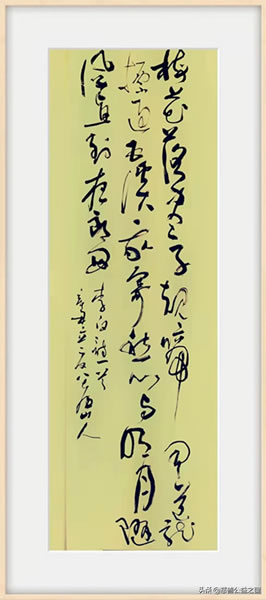 杨花落尽子规啼 闻道龙
标过五溪我寄愁心与明月随
风直到夜郎西 李白诗一首
辛丑 八公山人
头条